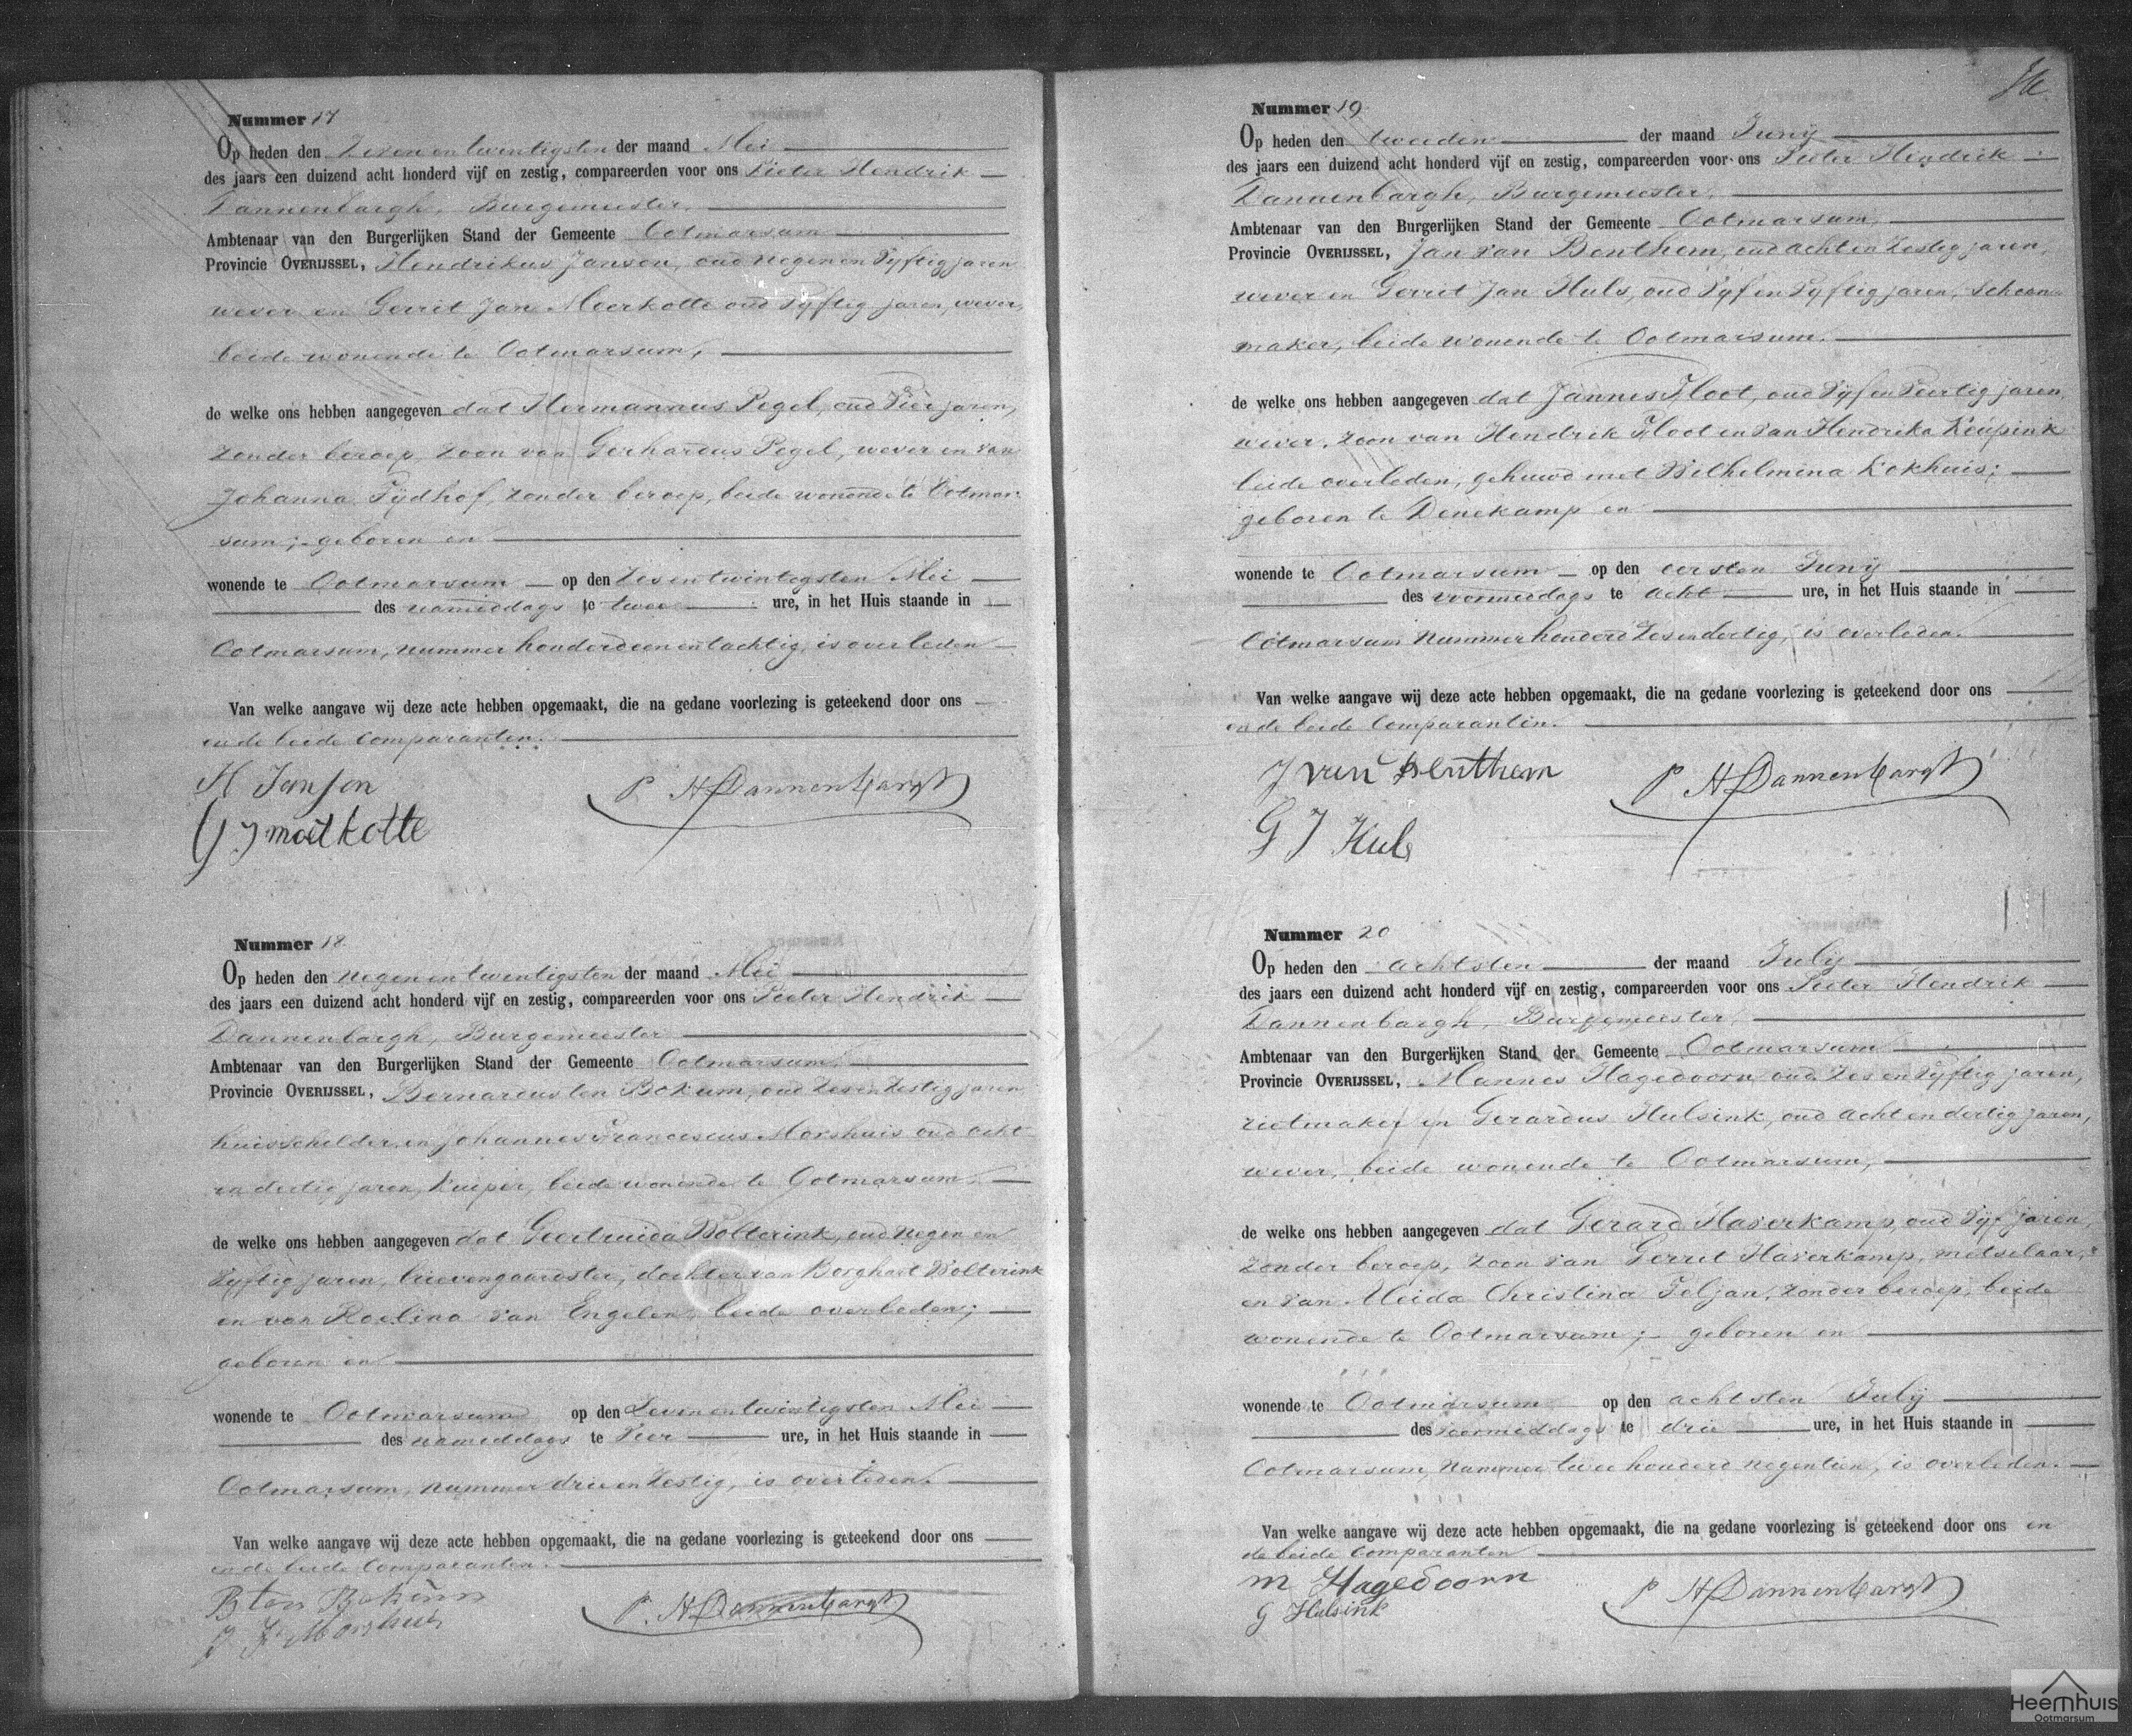 Nummer 17
Op heden den Zevenentwintigsten der maand Mei
des jaars een duizend acht honderd vijf en zestig, compareerden voor ons Pieter Hendrik
Dannenbargh, Burgemeester,
Ambtenaar van den Burgerlijken Stand der Gemeente Ootmarsum
Provincie OVERIJSSEL, Hendrikus Janson, oud negen en Vyftig jaren
wever en Gerrit Jan Moerkotte oud Vyftig jaren, wever,
beide wonende te Ootmarsum,
de welke ons hebben aangegeven dat Hermannus Pegel, oud Vier jaren,
zonder beroep, zoon van Gerhardus Pegel, wever en van
Johanna Tijdhof, zonder beroep, beide wonende te Ootmar-
sum; geboren en
wonende te Ootmarsum op den Zesentwintigsten Mei
des namiddags te twee ure, in het Huis staande in
Ootmarsum, nummer honderdeenentachtig, is overleden
Van welke aangave wij deze acte hebben opgemaakt, die na gedane voorlezing is geteekend door ons
en de beide Comparanten.
H Janson P H Dannenbargh
G J moetkotte
Nummer 18
Op heden den negenentwentigsten der maand Mei
des jaars een duizend acht honderd vijf en zestig, compareerden voor ons Pieter Hendrik
Dannenbargh, Burgemeester
Ambtenaar van den Burgerlijken Stand der Gemeente Ootmarsum,
Provincie OVERIJSSEL, Bernardus ten Bokum, oud Zesenzestig jaren
huisschilder, en Johannes Franciscus Morshuis oud acht
en dertig jaren, kuiper, beide wonende te Ootmarsum.
de welke ons hebben aangegeven dat Geertruida Bolterink, oud negen en
Vyftig jaren, brievengaardster, dochter van Borghart Bolterink
en van Roelina van Engelen, beide overleden;
geboren en
wonende te Ootmarsum op den Zevenentwintigsten Mei
des namiddags te Vier ure, in het Huis staande in
Ootmarsum, nummer drieenzestig, is overleden.
Van welke aangave wij deze acte hebben opgemaakt, die na gedane voorlezing is geteekend door ons
en de beide Comparanten.
B ten Bokum P. H Dannenbargh
J F Morshuis
Nummer 19
Op heden den tweeden der maand Junij
des jaars een duizend acht honderd vijf en zestig, compareerden voor ons Pieter Hendrik
Dannenbargh, Burgemeester,
Ambtenaar van den Burgerlijken Stand der Gemeente Ootmarsum,
Provincie OVERIJSSEL, Jan van Benthem, oud achtenzestig jaren,
wever en Gerrit Jan Huls, oud Vyf en Vyftig jaren, schoen-
maker, beide wonende te Ootmarsum.
de welke ons hebben aangegeven dat Jannes Floot, oud Vyfenveertig jaren,
wever, zoon van Hendrik Floot en van Hendrika Keupink
beide overleden, gehuwd met Wilhelmina Kokhuis;
geboren te Denekamp en
wonende te Ootmarsum op den eersten Junij
des voormiddags te acht ure, in het Huis staande in
Ootmarsum nummer honderd zesendertig, is overleden.
Van welke aangave wij deze acte hebben opgemaakt, die na gedane voorlezing is geteekend door ons
en de beide Comparanten.
J van Benthem P H Dannenbargh
G J Huls
Nummer 20
Op heden den achtsten der maand Julij
des jaars een duizend acht honderd vijf en zestig, compareerden voor ons Pieter Hendrik
Dannenbargh, Burgemeester,
Ambtenaar van den Burgerlijken Stand der Gemeente Ootmarsum
Provincie OVERIJSSEL, Mannes Hagedoorn, oud zes en Vyftig jaren,
rietmaker en Gerardus Hulsink, oud acht en dertig jaren,
wever, beide wonende te Ootmarsum,
de welke ons hebben aangegeven dat Gerard Haverkamp, oud Vyf jaren,
zonder beroep, zoon van Gerrit Haverkamp, metselaar,
en van Meida Christina Teljan, zonder beroep, beide
wonende te Ootmarsum; geboren en
wonende te Ootmarsum op den achtsten Julij
des voormiddags te drie ure, in het Huis staande in
Ootmarsum, nummer twee honderd negentien, is overleden.
Van welke aangave wij deze acte hebben opgemaakt, die na gedane voorlezing is geteekend door ons en
de beide Comparanten
m Hagedoorn P H Dannenbargh
G Hulsink
Heemhuis
Ootmarsum